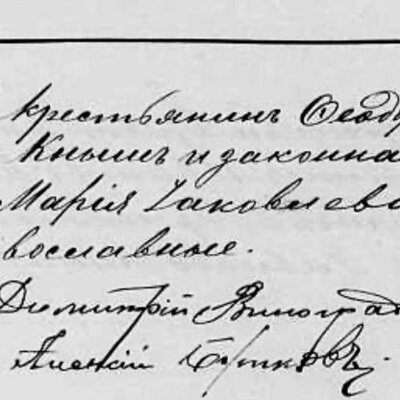 крестьянинъ Ѳеод
Кнышъ и законна
Марія Іаковлева
вославные.
Димитрій Виноград
Алексій